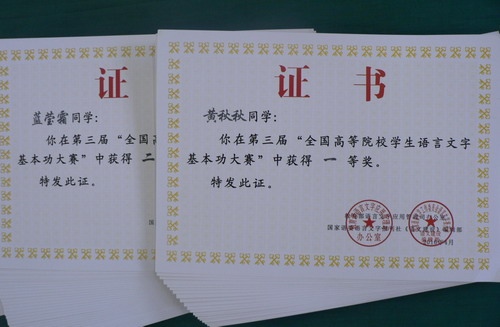 证
蓝莹霜同学:
你在第三届“全国高
基本功大赛”中获得 二
特发此证。
证 书
黄秋秋同学:
你在第三届“全国高等院校学生语言文字
基本功大赛”中获得 一 等奖。
特发此证。
办公室